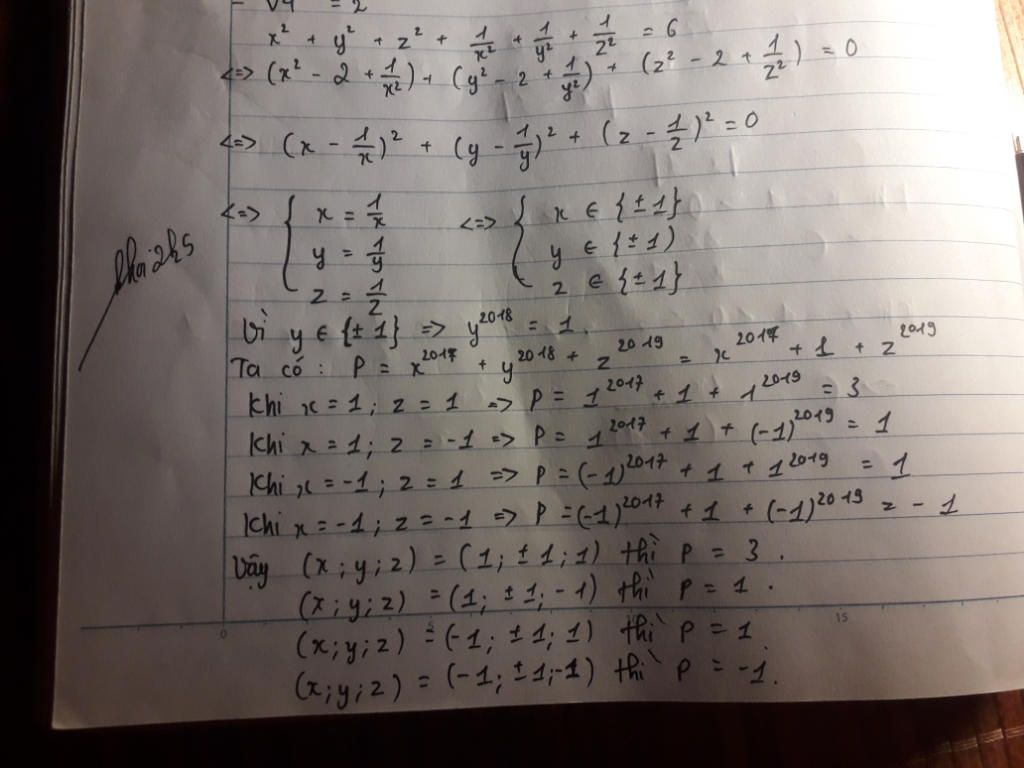 - √4 = 2
x² + y² + z² + 1/x² + 1/y² + 1/z² = 6
<=> (x² - 2 + 1/x²) + (y² - 2 + 1/y²) + (z² - 2 + 1/z²) = 0
<=> (x - 1/x)² + (y - 1/y)² + (z - 1/z)² = 0
<=> { x = 1/x <=> { x ∈ {±1}
y = 1/y y ∈ {±1)
z = 1/z z ∈ {±1}
Vì y ∈ {±1} => y²⁰¹⁸ = 1.
Ta có : P = x²⁰¹⁷ + y²⁰¹⁸ + z²⁰¹⁹ = x²⁰¹⁷ + 1 + z²⁰¹⁹
Khi x = 1 ; z = 1 => P = 1²⁰¹⁷ + 1 + 1²⁰¹⁹ = 3
Khi x = 1 ; z = -1 => P = 1²⁰¹⁷ + 1 + (-1)²⁰¹⁹ = 1
Khi x = -1 ; z = 1 => P = (-1)²⁰¹⁷ + 1 + 1²⁰¹⁹ = 1
Khi x = -1 ; z = -1 => P = (-1)²⁰¹⁷ + 1 + (-1)²⁰¹⁹ = - 1
Vậy (x ; y ; z) = (1 ; ±1 ; 1) thì P = 3 .
(x ; y ; z) = (1 ; ±1 ; -1) thì P = 1 .
(x ; y ; z) = (-1 ; ±1 ; 1) thì P = 1
(x ; y ; z) = (-1 ; ±1 ; -1) thì P = -1.
0 15